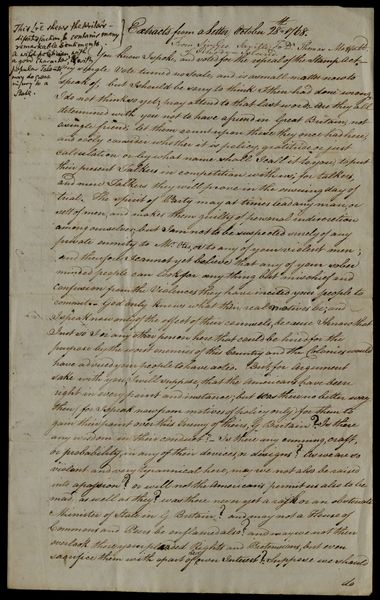 This Lr. shews the Writers
dissatisfaction & contains many
remarkable Sentiments
a wild politician with
a good Character & with
popular Talents
may do more
injury to a
State.
Extracts from a Letter October 28th 1768.
From
You know I spoke, and voted for the repeal of the Stamp Act
My single Vote turned no scale, and is a small matter now to
speak of, but I should be sorry to think I then had done wrong
I do not think so yet; may attend to that last word. Are they all
determined with you not to have a friend in Great Britain, not
a single friend? let them count upon those they once had here;
and cooly consider whether it is policy, gratitude or just
calculation or by what name shall I call it to you, to put
their present Talkers in competition with us; for talkers,
and mere Talkers they will prove in the ensuing day of
trial. The spirit of Party may at times lead any man, or
set of men, and makes them guilty of personal indiscretion
among ourselves; but I am not to be suspected surely of any
private enmity to Mr. Otis, or to any of your violent men
and therefore I cannot yet believe that any of your
minded people can look for any thing but mischief and
confusion from the Violences they have incited your people to
commit. God only knows what their real motives are; and
I speak now only of the effect of their counsels, because I know that
Just so I or any other person here that could be hired for the
purpose by the worst enemies of this Country and the Colonies would
have advised your people to have acted. But, for argument
sake with you, I will suppose, that the Americans have been
right in every point and instance; but was there no better way
then, for I speak now from motives of policy only, for them to
gain their point over this Enemy of theirs, G. Britain? Is there
any wisdom in their conduct? Is there any cunning, craft,
or probability, in any of their devices, or designs? As we are so
violent and very tyrannical here, may we not also be raised
into a passion? or will not the Americans permit us also to be
mad as well as they? was there never yet a rash or an obstinate
Minister of State in G. Britain? and may not a House of
Commons and Peers be enflamed also? and may we not then
overlook their pleased Rights and Pretensions, but even
sacrifice them with a part of our own Interest? Suppose we should
do